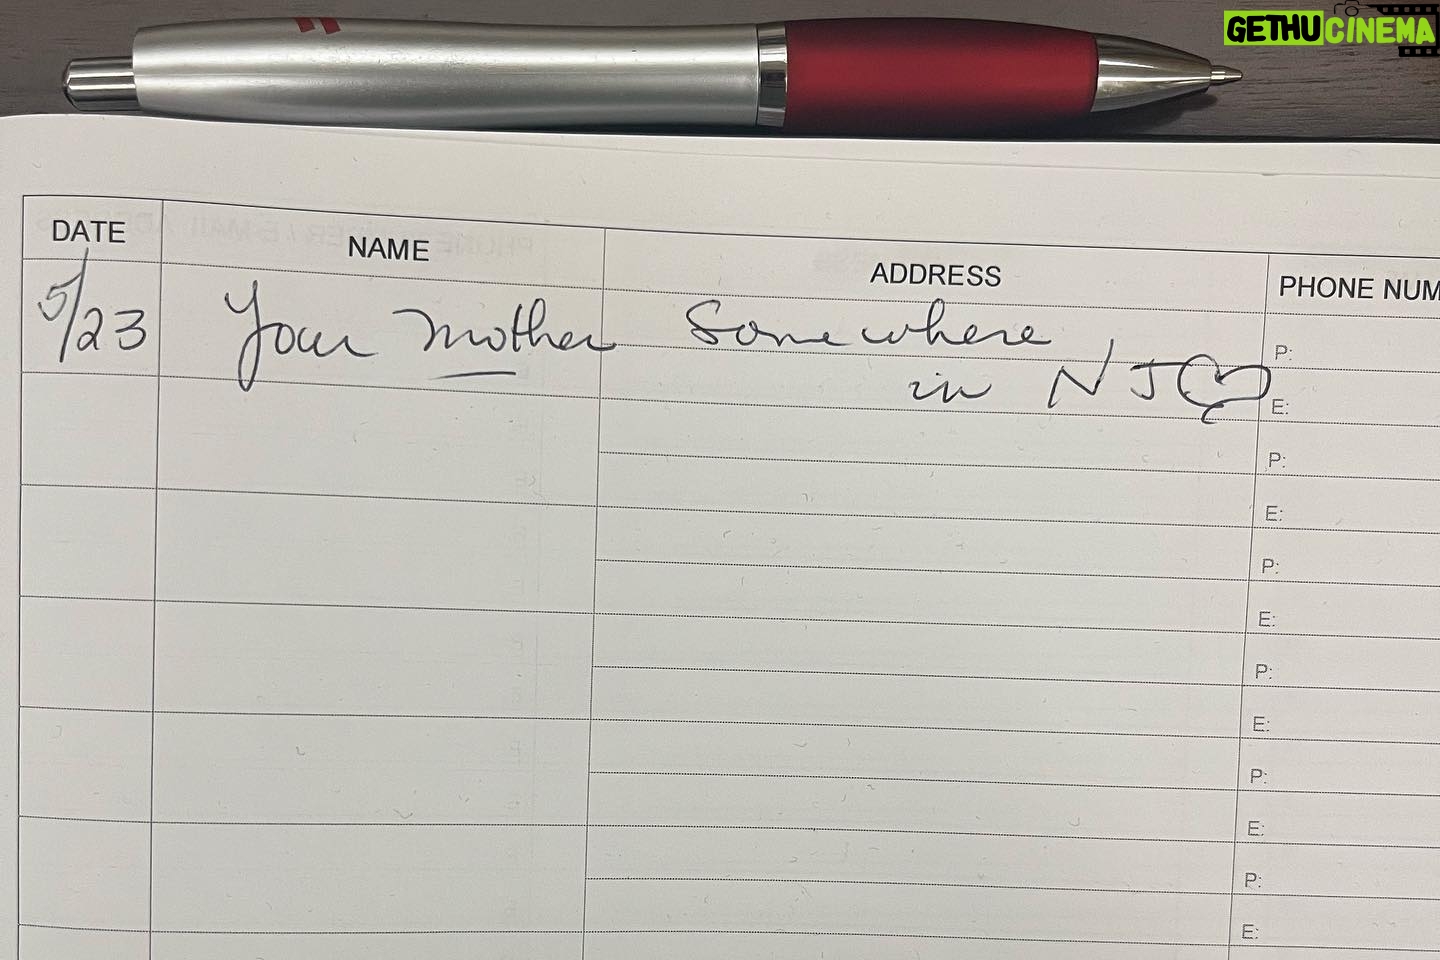 GETHUCINEMA
DATE NAME ADDRESS PHONE NUM
5/23 Your mother Somewhere P:
in NJ E:
P:
E:
P:
E:
P:
E:
P:
E:
P:
E: